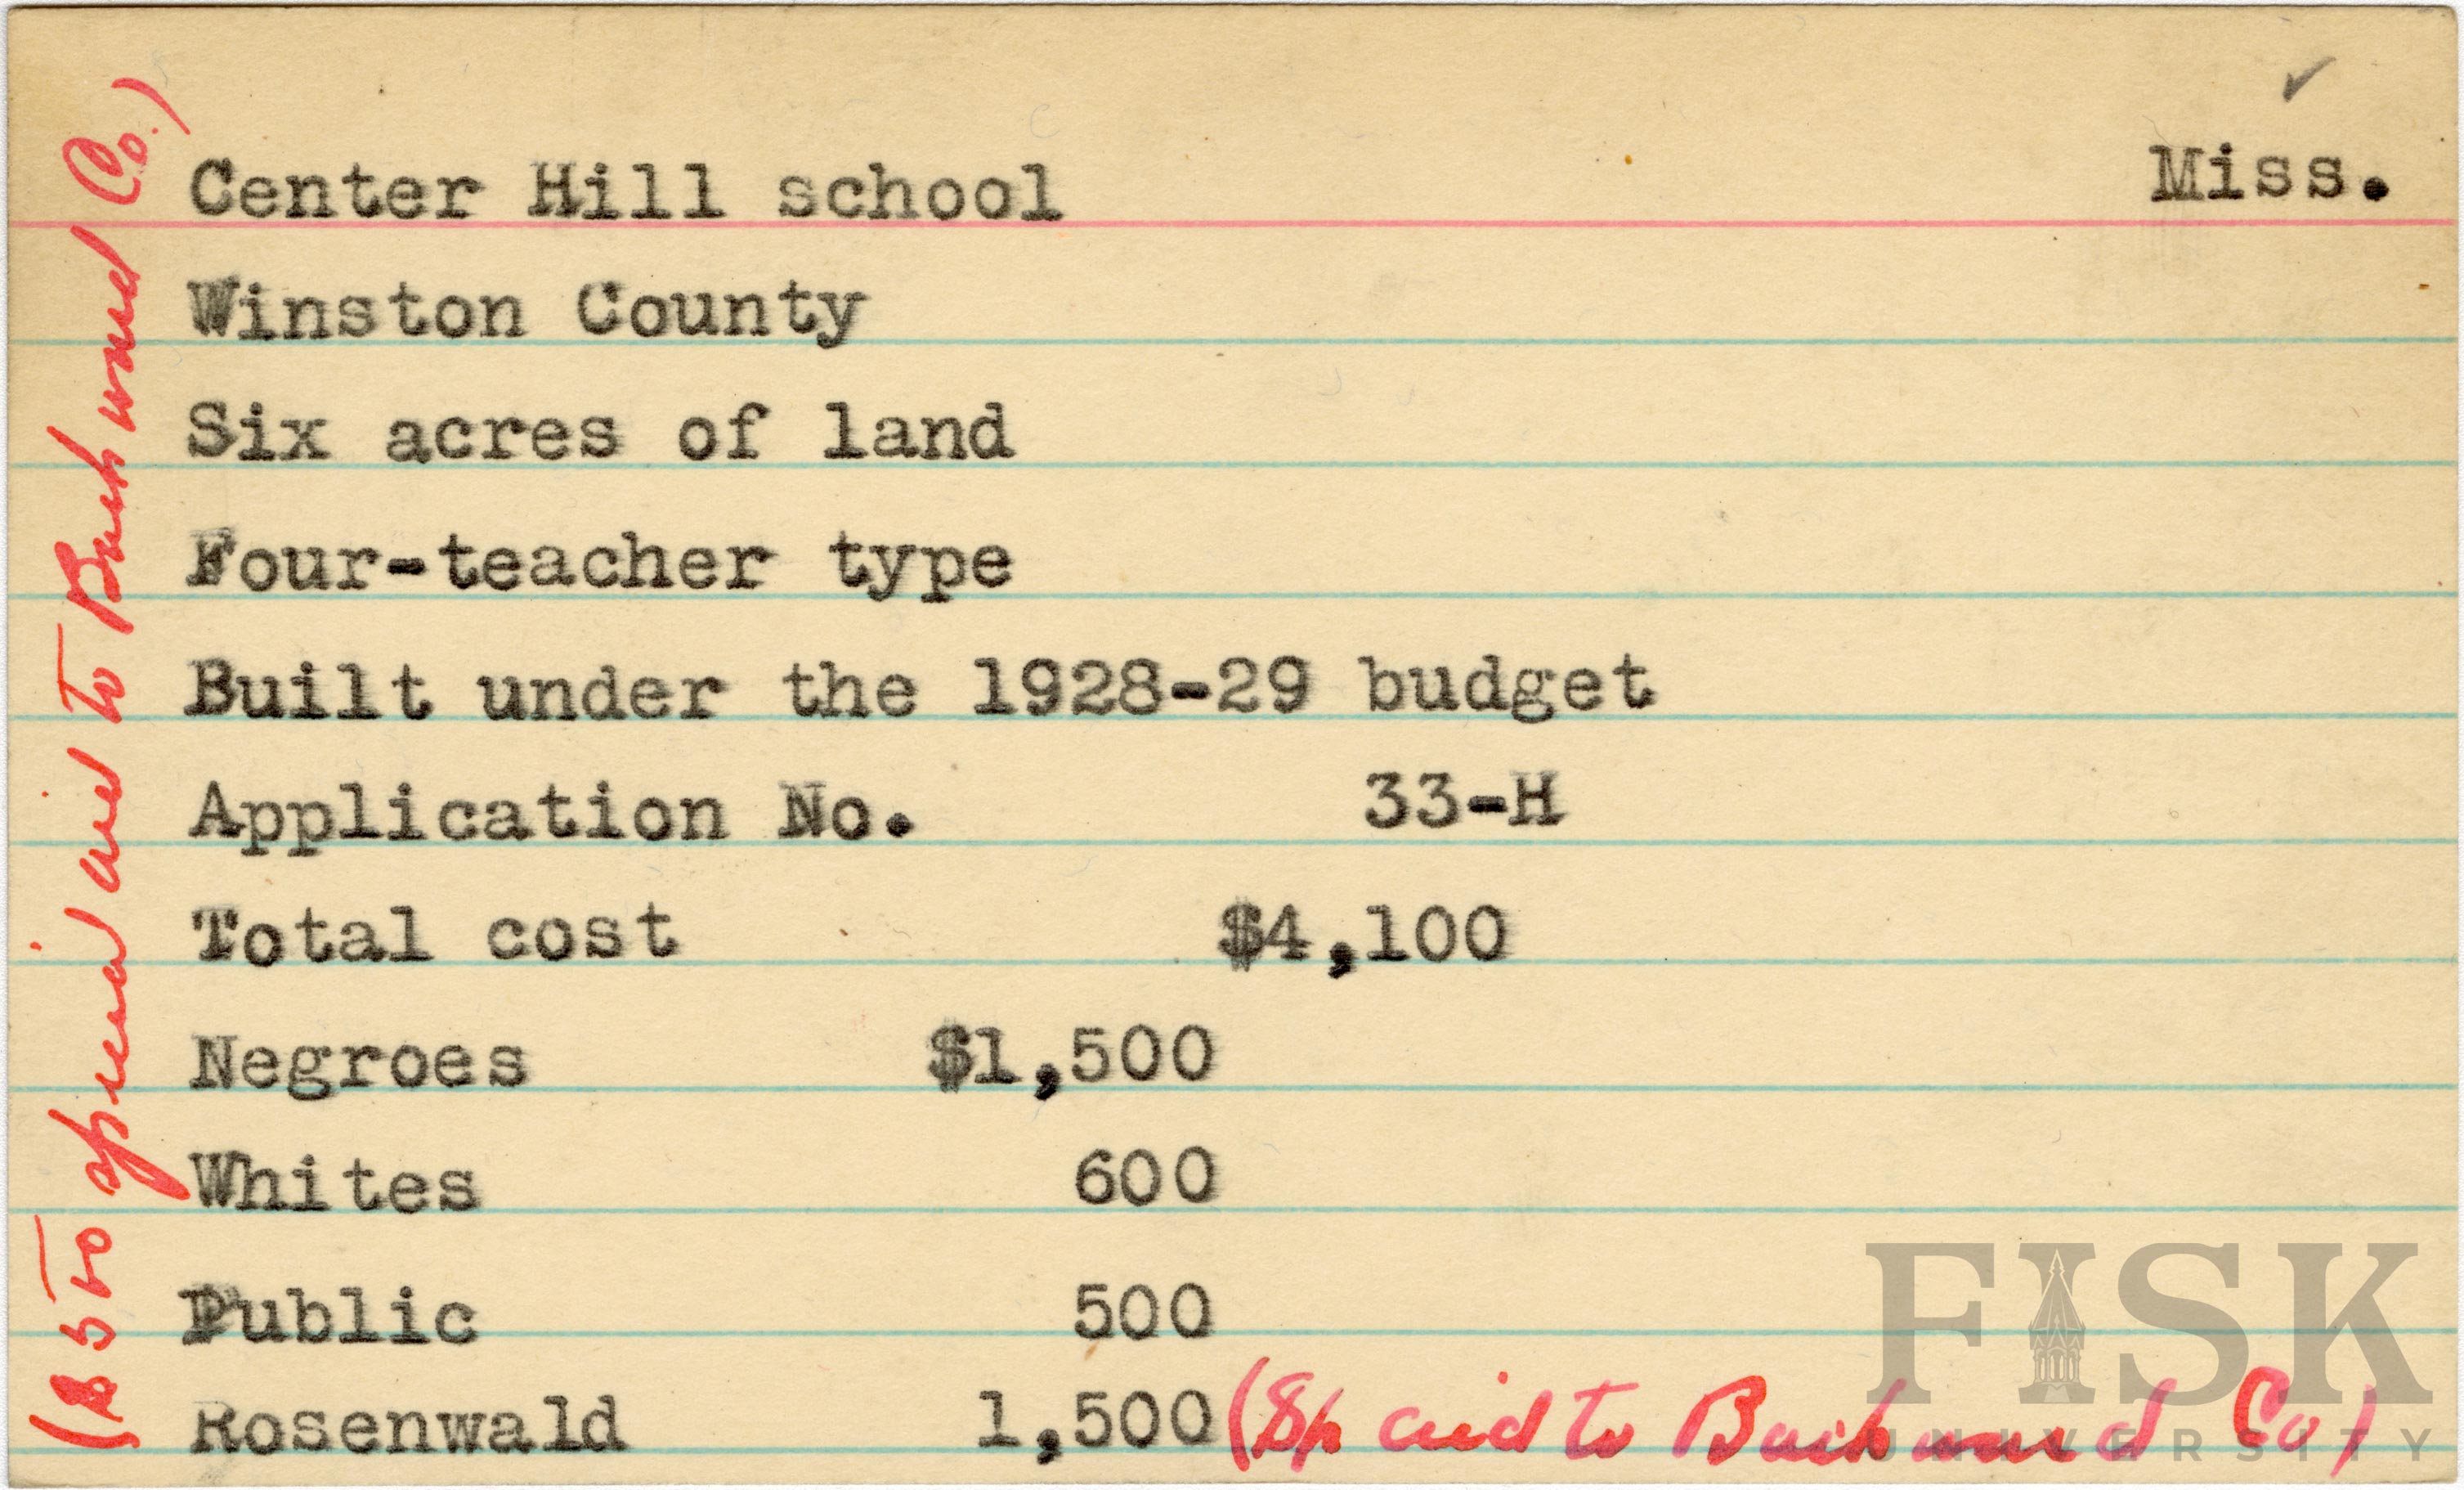 ✓
Center Hill school Miss.
Winston County
Six acres of land
Four-teacher type
Built under the 1928-29 budget
Application No. 33-H
Total cost $4,100
Negroes $1,500
Whites 600
Public 500
Rosenwald 1,500 (Sp aid to Backward Co)
($500 special aid to Backward Co.)
FISK
UNIVERSITY